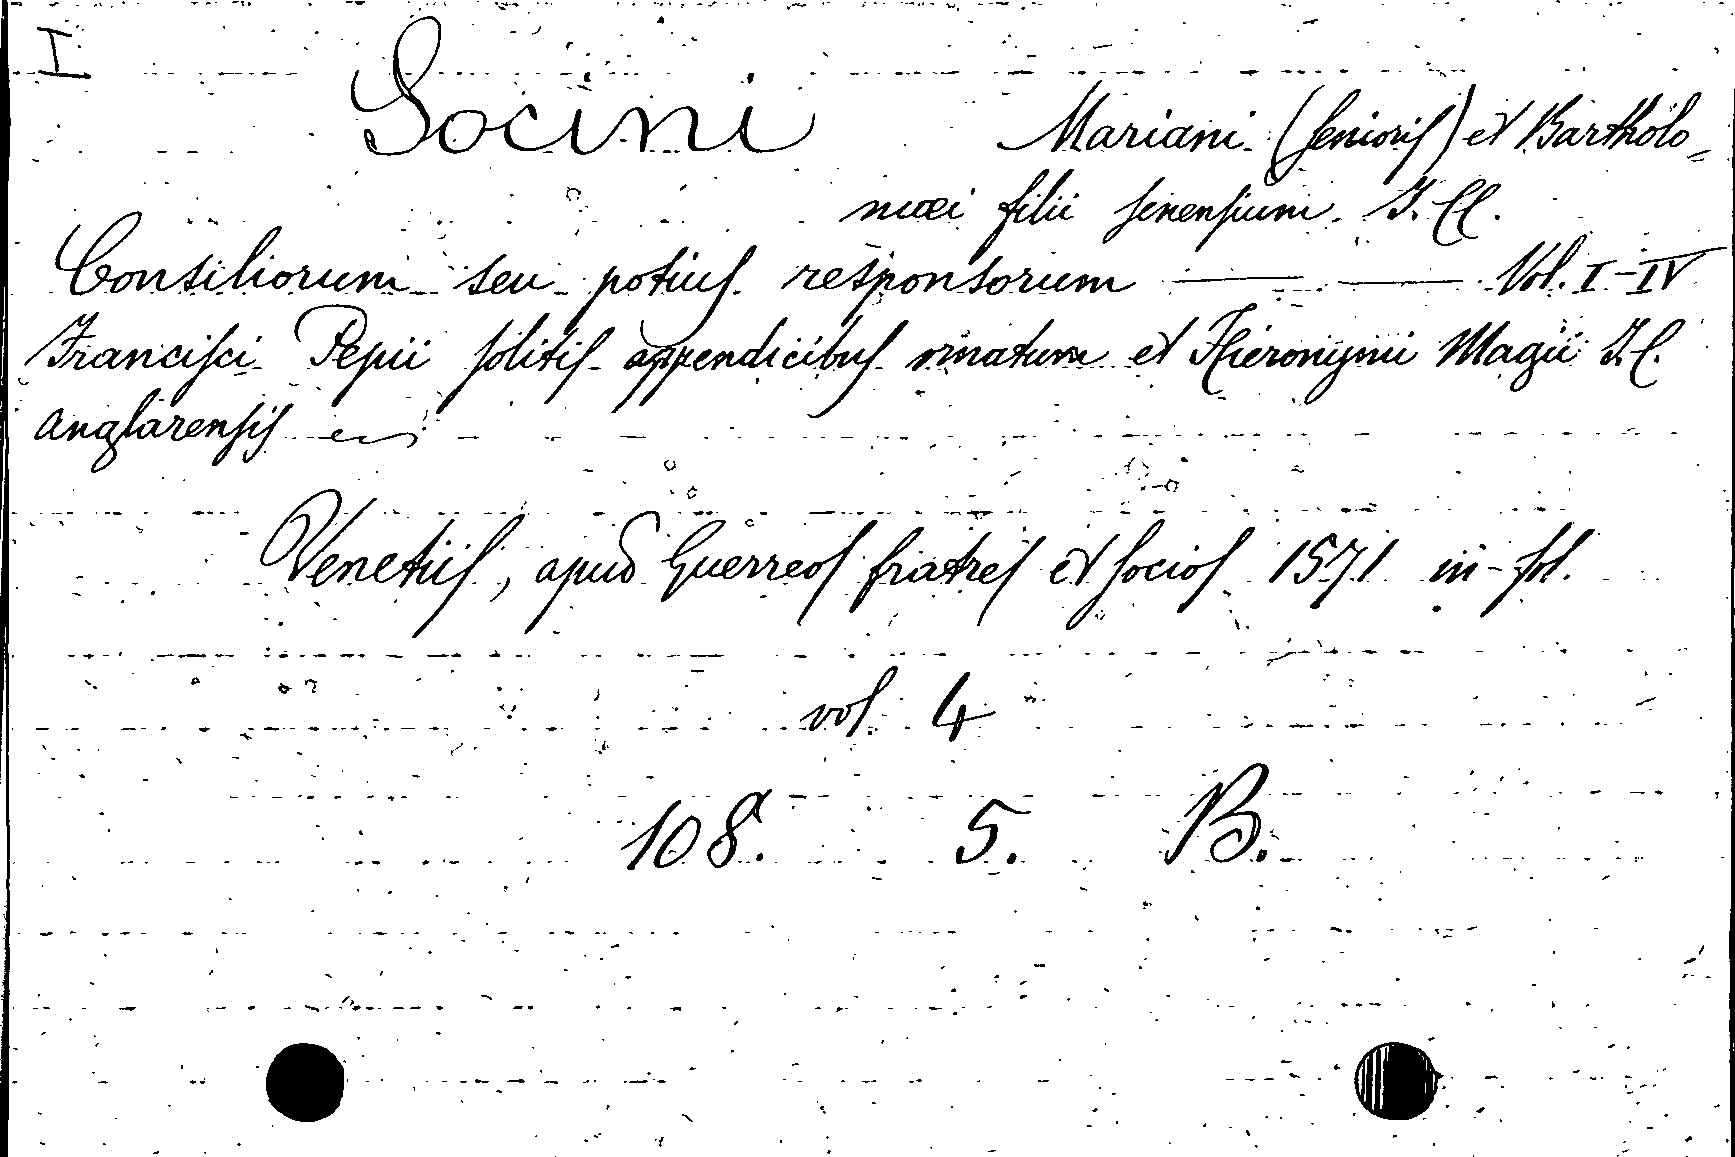 I
Socini Mariani (senioris) et Bartholo=
mæi filii senensium J. CC.
Consiliorum seu potius responsorum — — Vol. I-IV
Francisci Pepii solitis appendicibus ornatum et Hieronymi Magii J.C.
anglarensis
Venetiis, apud Guerreos fratres et socios 1571 in-fol.
vol. 4
108. 5. B.